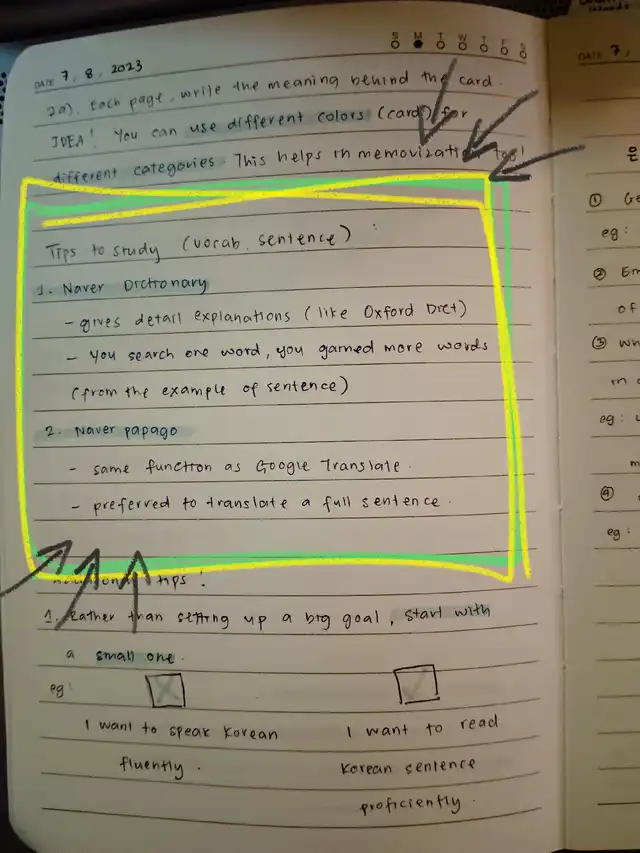 S M T W T F S
DATE 7, 8, 2023
2a). Each page, write the meaning behind the card.
IDEA! You can use different colors (card) for
different categories. This helps in memorization too!
Tips to study (vocab, sentence) :
1. Naver Dictionary
- gives detail explanations (like Oxford Dict)
- You search one word, you gained more words
(from the example of sentence)
2. Naver papago
- same function as Google Translate.
- preferred to translate a full sentence.
tips!
1. Rather than setting up a big goal, start with
a small one.
eg:
I want to speak Korean
fluently.
I want to read
Korean sentence
proficiently.
DATE 7,
은
① Ge
eg:
② Em
of
③ Wh
in
eg:
m
④
eg: